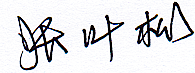 张叶松